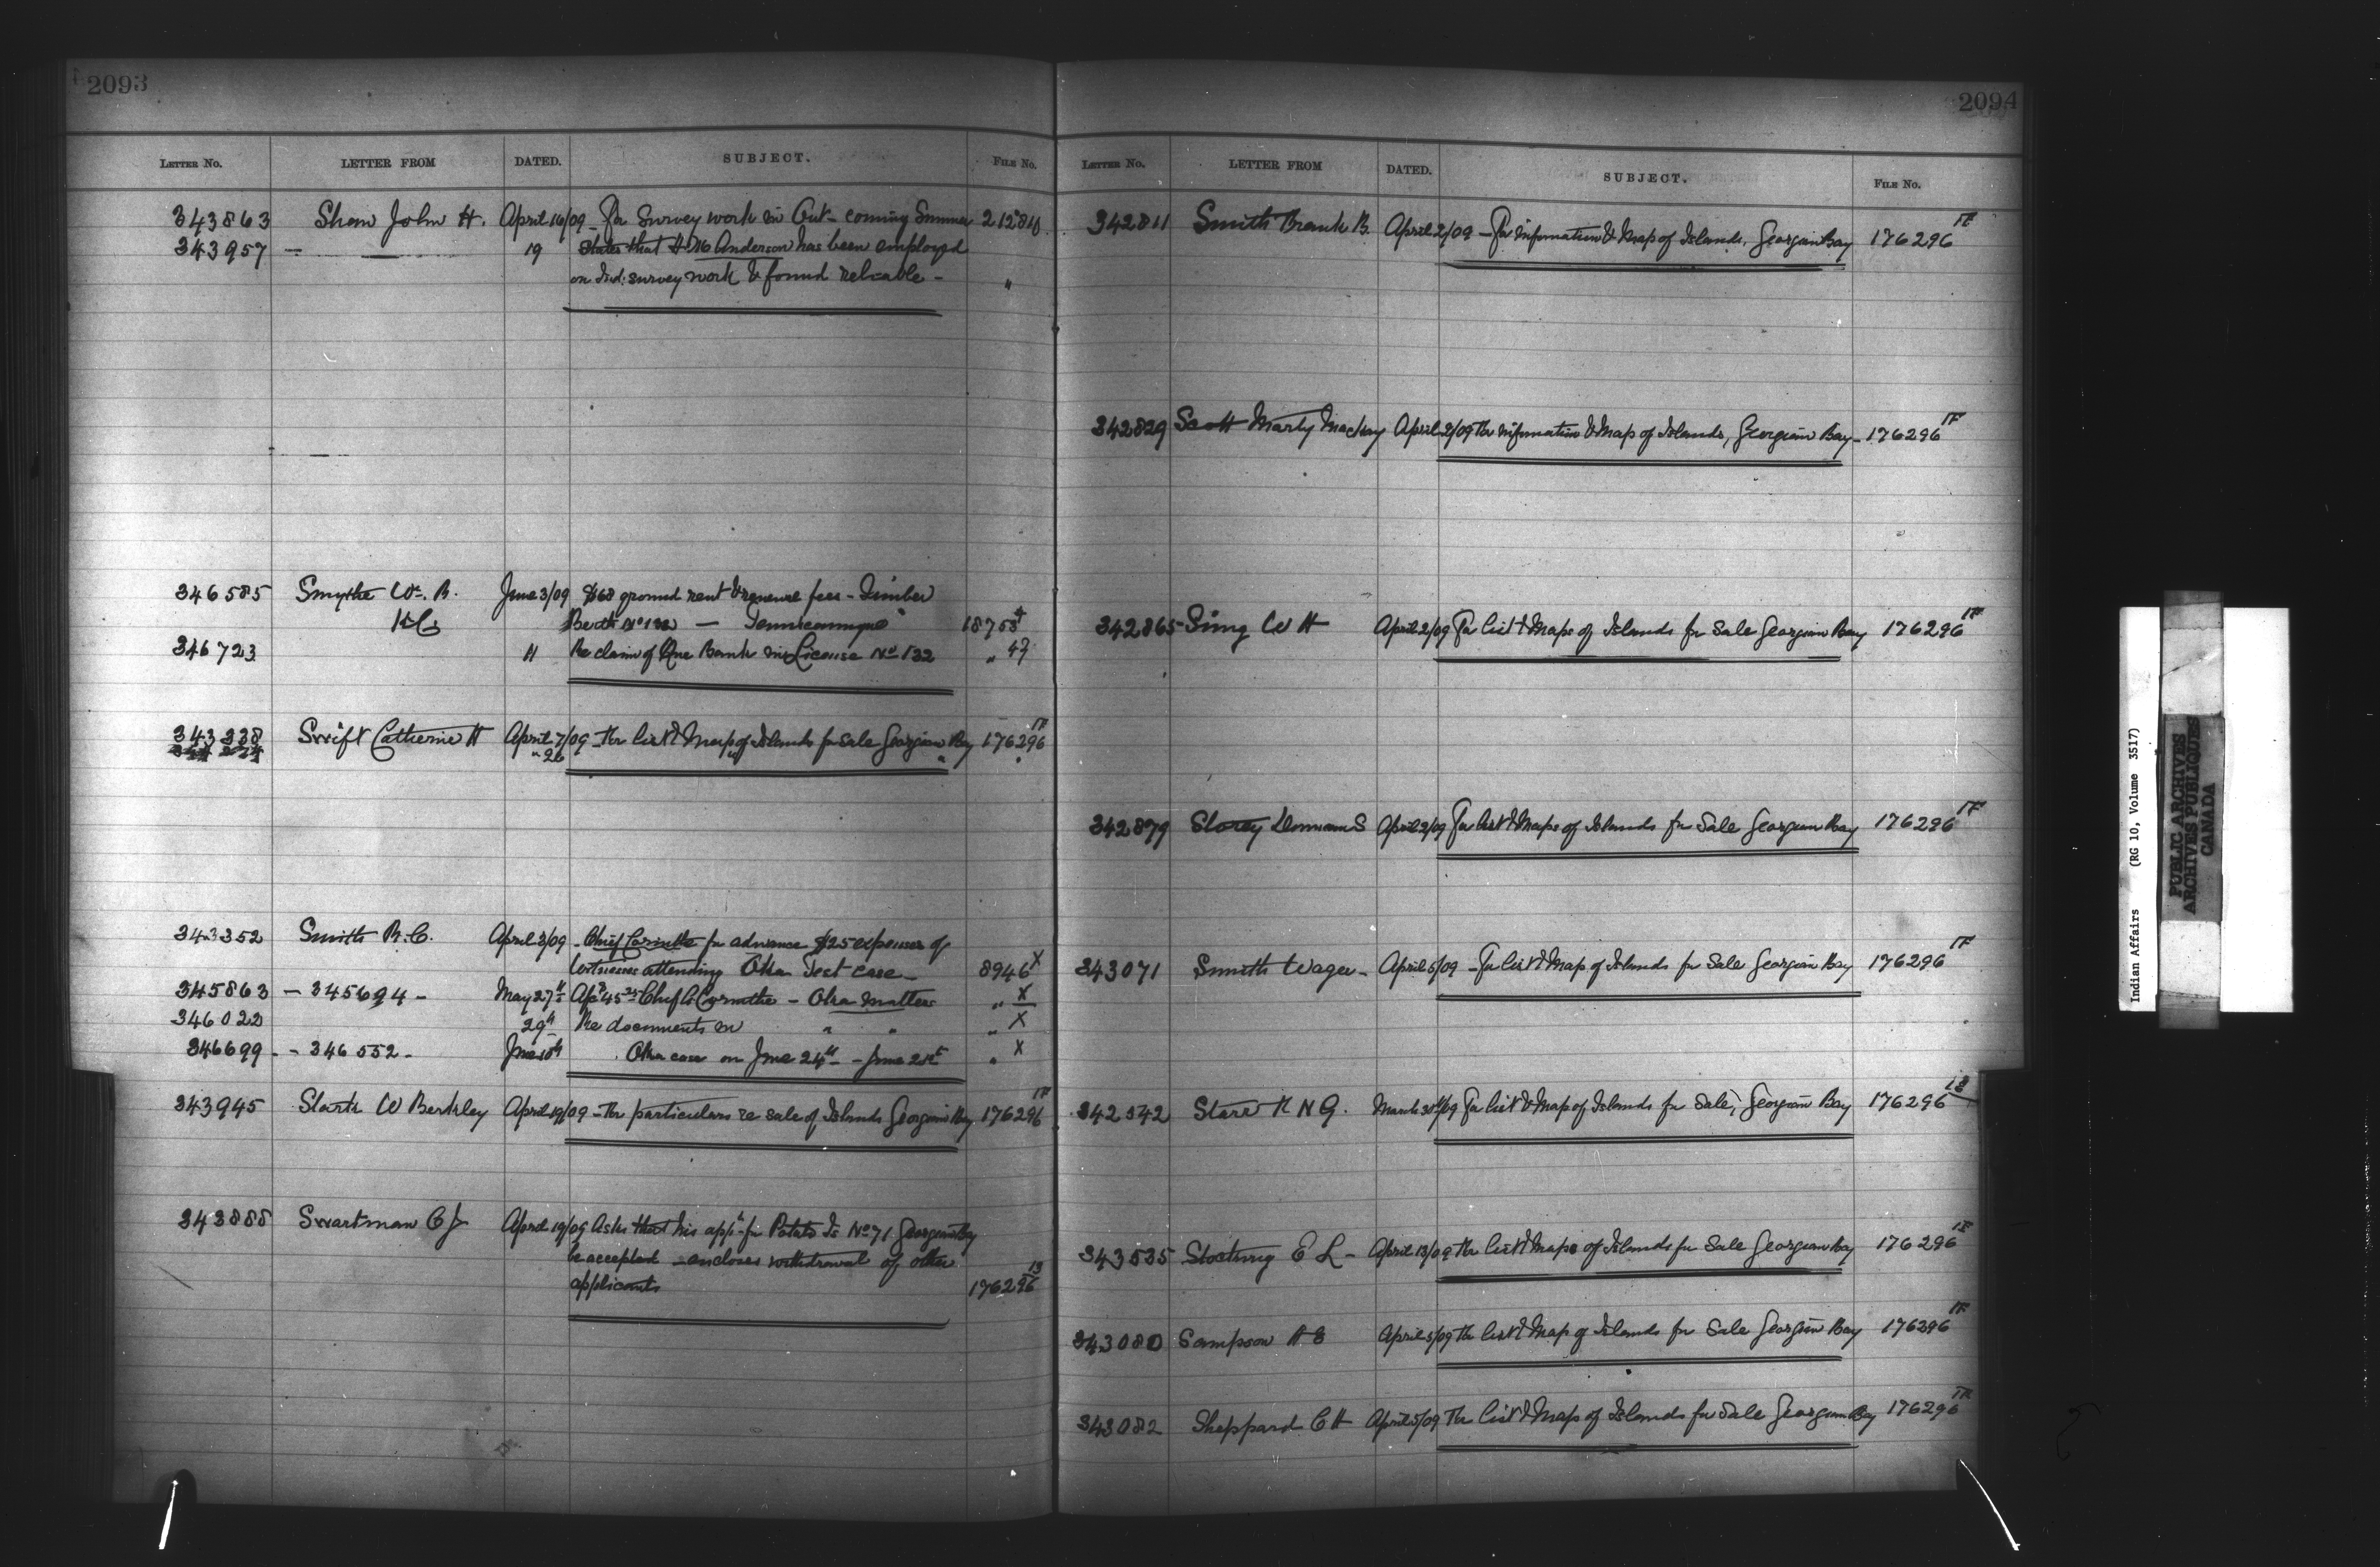 2093
LETTER NO. LETTER FROM DATED. SUBJECT. FILE NO.
343863 Shaw John H. April 16/09 - For Survey work in Ont - coming Summer 212810
343957 — — 19 States that Anderson has been employed
on Ind: survey work & found reliable - "
346585 Smythe Wm. R. June 3/09 $68 ground rent & renewal fees - Timber
KC Berth No 132 — Temiscamingue 18758
346723 11 Re claim of Que Bank in License No 132 " 
343338 Swift Catherine H April 7/09 - For list & Map of Islands for sale Georgian Bay 176296 1F
" 26 "
343352 Smith R.C. April 3/09 - Chief Corinthe for advance $25 expenses of
Witnesses attending Oka Test case - 8946 X
345863 - 345694 - May 27th Chief Corinthe - Oka matters " X
346022 29th Re documents in " " " X
346699 - - 346552 - June Oka case on June 24th - June " X
343945 Stark W Berkley April 19/09 - For particulars re sale of Islands Georgian Bay 176296 1F
343888 Swartman C J April 19/09 Asks that his appn for Potato Is No 71 Georgian Bay
be accepted - encloses withdrawal of other
applicants 176296 13
2094
LETTER NO. LETTER FROM DATED. SUBJECT. FILE NO.
342811 Smith Frank B. April 2/09 - For information & Map of Islands, Georgian Bay 176296 1F
342829 Scott Marty Mackay April 2/09 For information & Map of Islands, Georgian Bay - 176296 1F
342865 Sing W H April 2/09 For list & Maps of Islands for Sale Georgian Bay 176296 1F
342879 Storey S April 2/09 For list & Maps of Islands for Sale Georgian Bay 176296 1F
343071 Smith Wager - April 5/09 - For list & Map of Islands for Sale Georgian Bay 176296 1F
342542 Starr R N G. March 30th/09 For list & Map of Islands for Sale, Georgian Bay 176296
343535 E L - April 13/09 For list & Maps of Islands for Sale Georgian Bay 176296 1F
343080 Sampson H E April 5/09 For list & Map of Islands for Sale Georgian Bay 176296 1F
343082 Sheppard C H April 5/09 For list & Map of Islands for Sale Georgian Bay 176296 1F
Indian Affairs (RG 10, Volume 3517)
PUBLIC ARCHIVES
ARCHIVES PUBLIQUES
CANADA